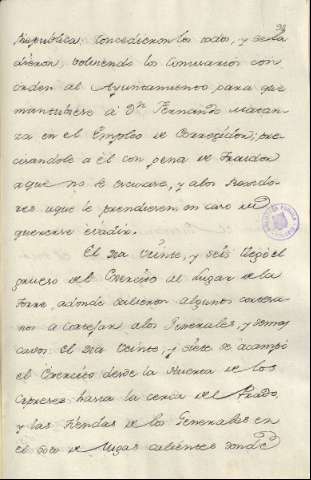 Republica: Concedieronlos todos, y se la
dieron, volviendo los Comisarios con
orden al Ayuntamiento para que
mantubiese á Dn. Fernando Matan-
za en el Empleo de Corregidor; pre-
cisandole a él con pena de Traidor
aque no lo escusase, y alos Rexido-
res aque lo prendiesen en caso de
quererse evadir.
El Dia Veinte, y seis llegó el
grueso del Exercito al Lugar de la
Torre, adonde salieron algunos cortesa-
nos a Cortejar alos Generales, y demas
cavos: El Dia Veinte, y siete se acampó
el Exercito desde la Huerta de los
Cipreses hasta la cerca del Prado,
y las tiendas de los Generales en
el Soto de Migas calientes donde